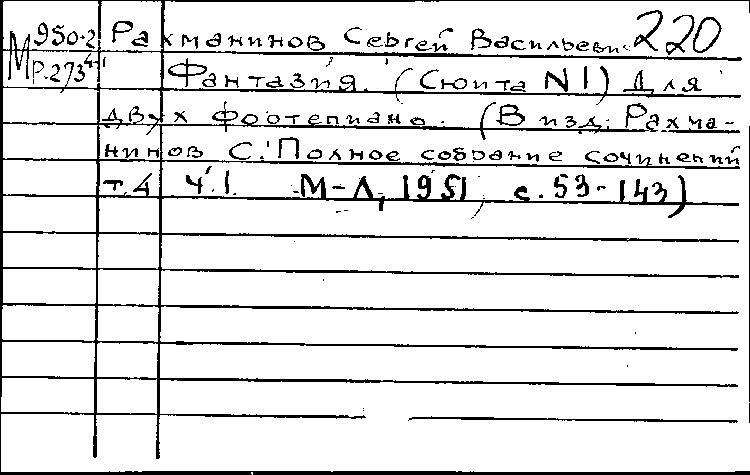 М 950-2 Рахманинов Сергей Васильеви. 220
Р.273 Фантазия. (Сюита N1) Для
двух фортепиано. (В изд: Рахма-
нинов С. Полное собрание сочинений
т.4 ч.1. М-Л, 1951, с.53-143)